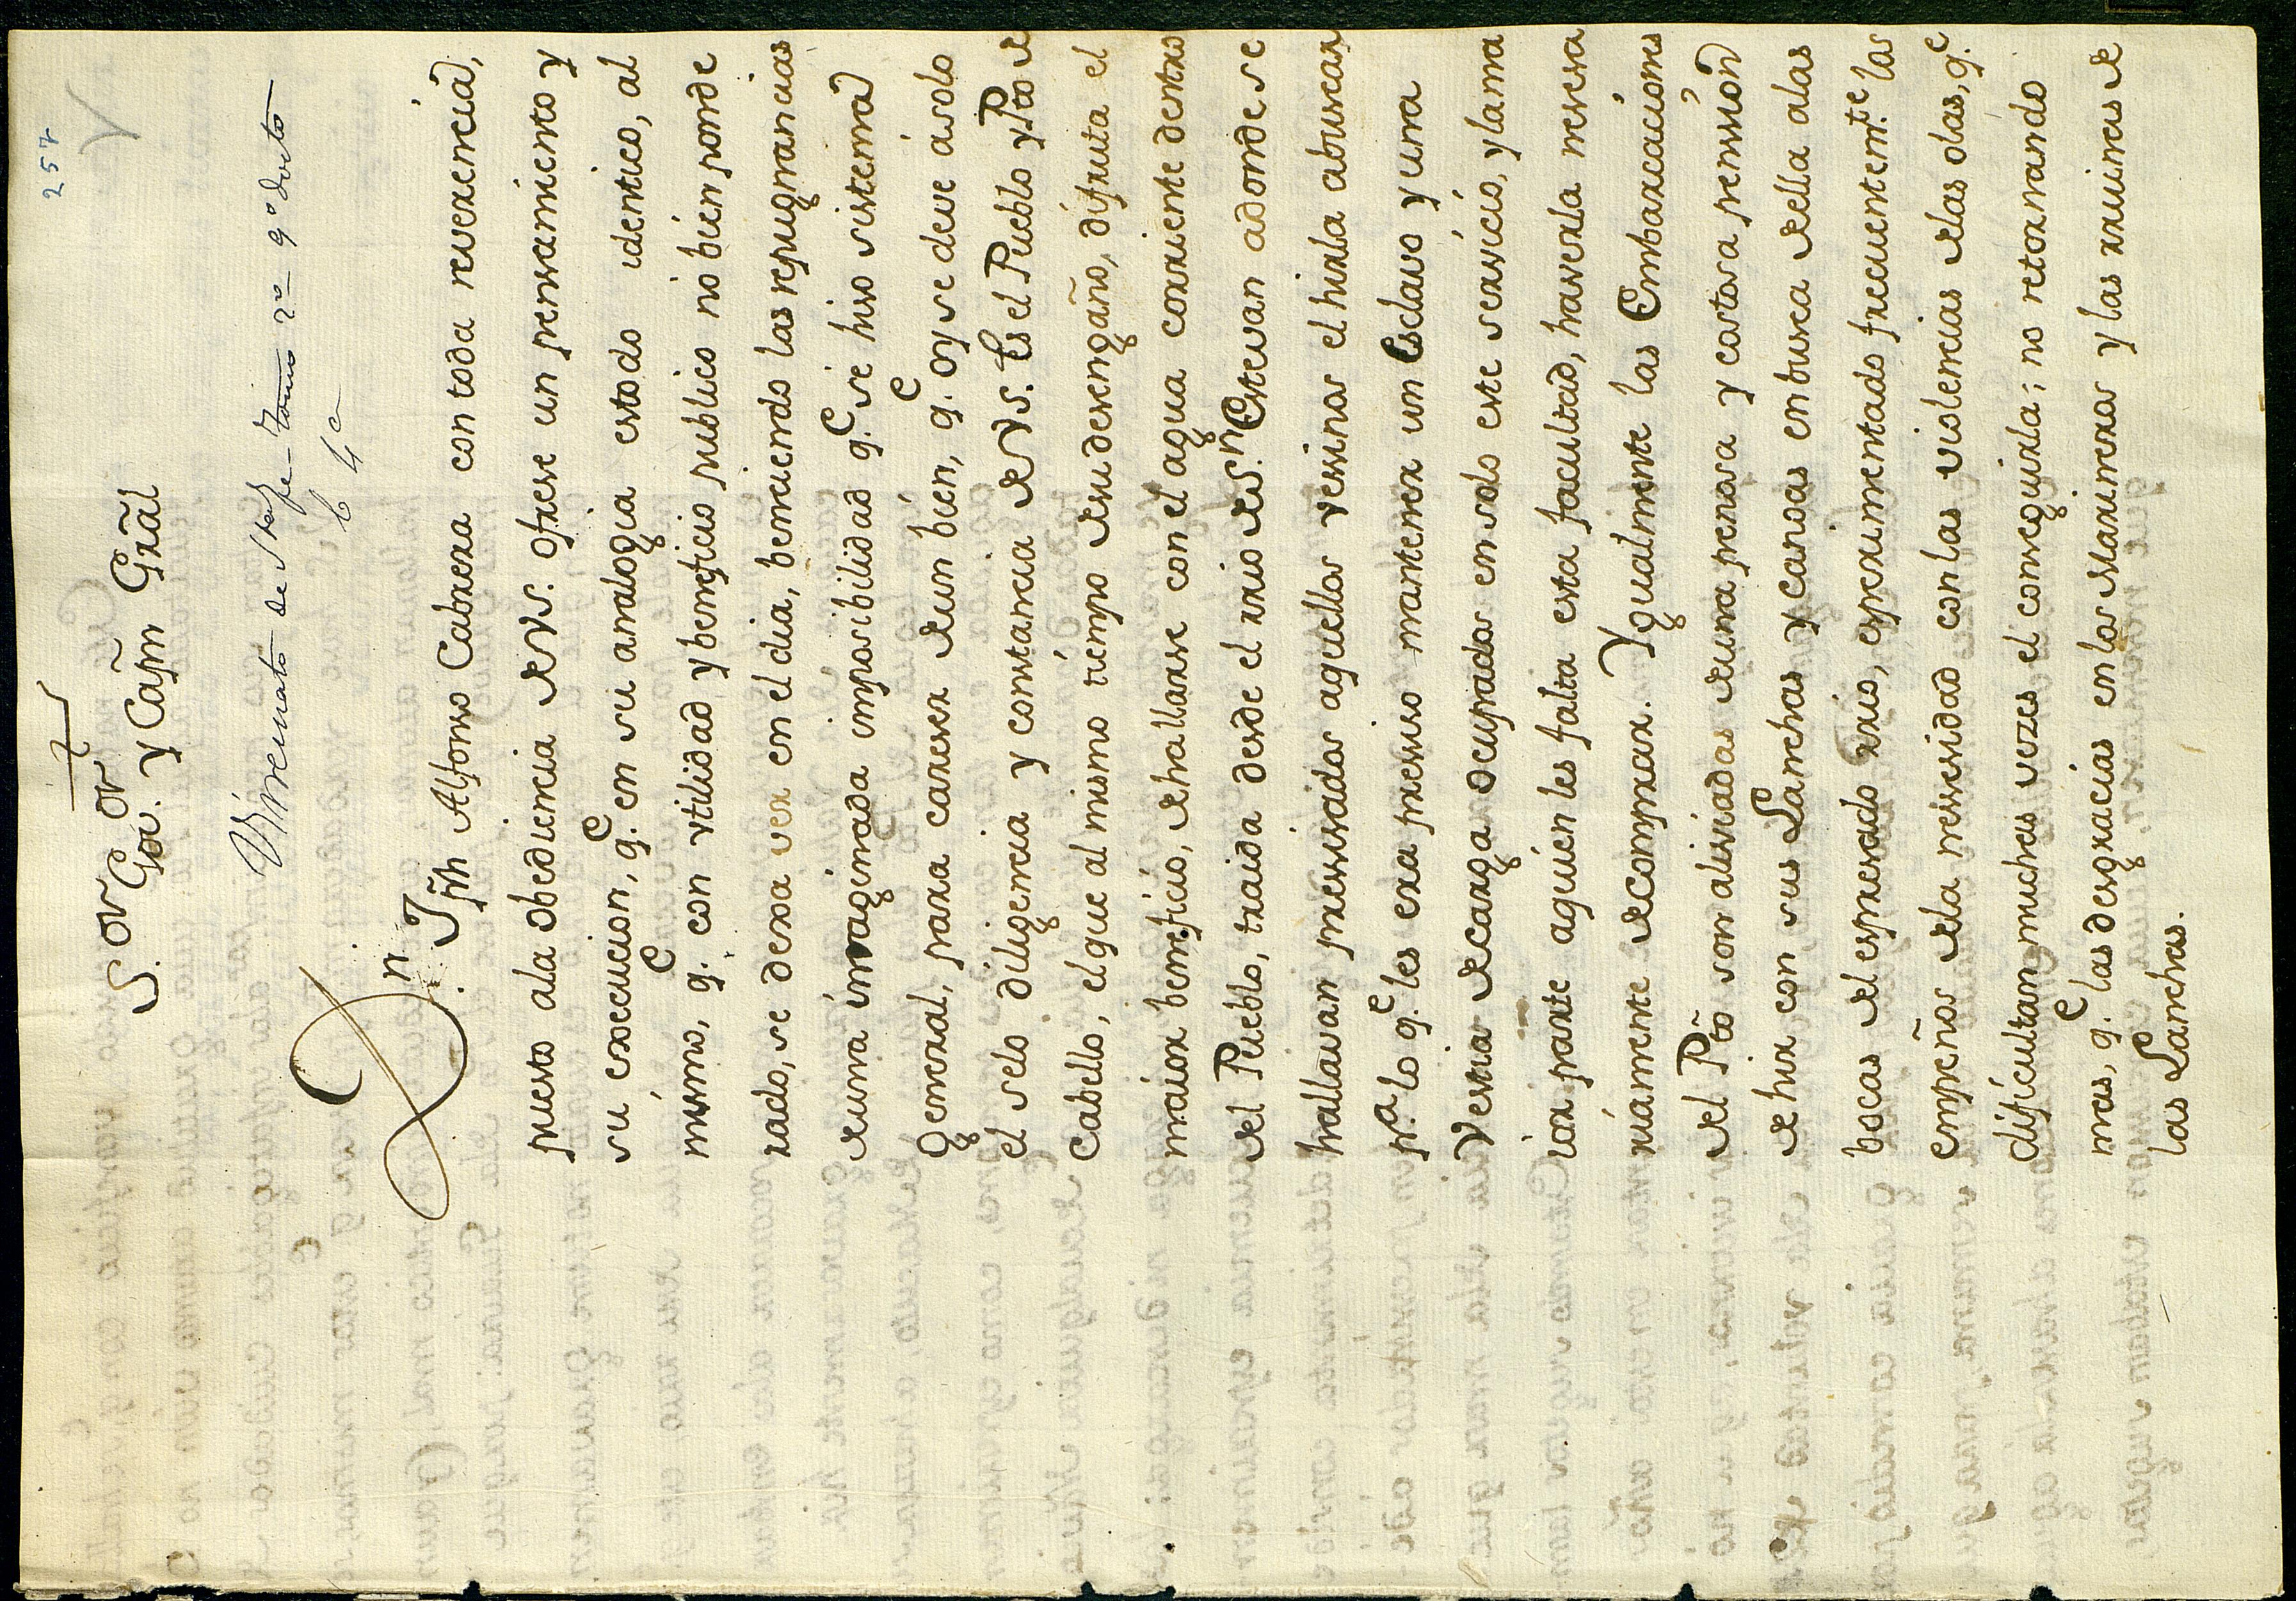 257
S.or Gov.or y Capñ Grãl
Virreinato de Santafe - Tomo 2º - 9º ducto
Dn. Jph Alfonso Cabrera con toda reverencia,
puesto ala obediencia de VS. ofrese un pensamiento y
su execucion, q.e en su analogia estodo identico, al
mismo, q.e con vtilidad y beneficio publico no bien ponde
rado, se dexa ver en el dia, benciendo las repugnancias
deuna imaginada imposibilidad q.e sé hiso sistema
general, para careser deun bien, q.e oy se deve ásolo
el selo diligencia y constancia de VS. Es el Pueblo y Pto de
Cabello, el que al mismo tiempo desu desengaño, disfruta el
maior beneficio, de hallarse con el agua corriente dentro
del Pueblo, traida desde el rrio de Sn. Estevan adonde se
hallavan presissados aquellos vessinos el hirla abuscar,
p.a lo q.e les era presiso mantener un Esclavo y una
Vestia decarga ocupados en solo este servicio, y la ma
ior parte aquien les falta esta facultad, haverla nesesa
riamente decomprar. Ygualmente las Embarcaciones
del Pto son alisviadas deuna penosa y costosa penssión
de hir con sus Lanchas y canoas en busca della alas
bocas del espresado rrio, esperimentado frecuentem.te los
empeños dela nesesidad con las violencias delas olas, q.e
dificultan muchas vezes el conseguirla; no retornando
mas, q.e las desgracias en los Marineros y las rruinas de
las Lanchas.